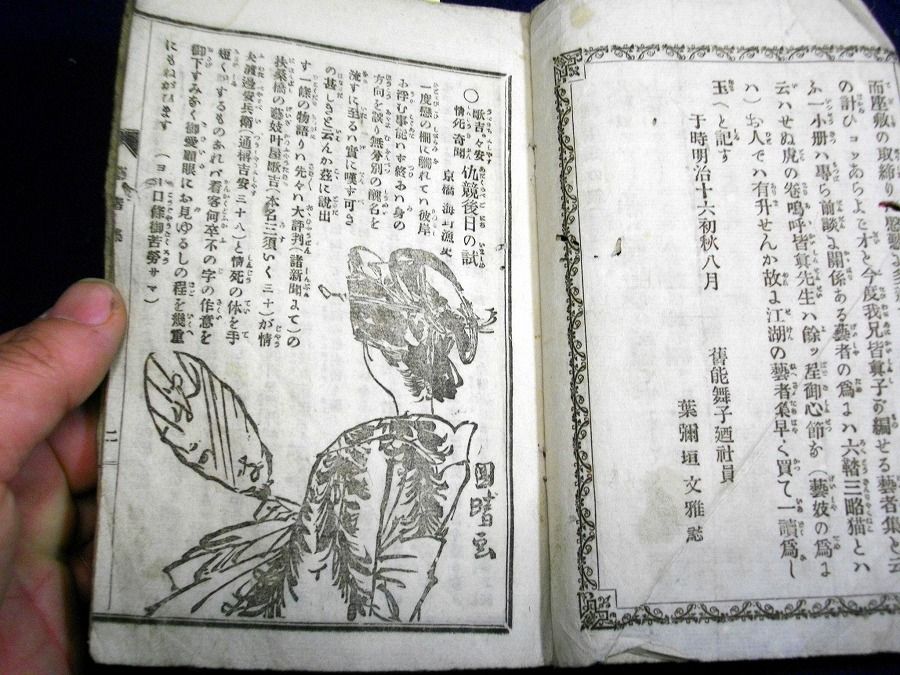 而座敷の取締り
の計ひヨッあらよと才と今度我兄皆眞子が編せる藝者集と云
ふ一小册ハ專ら前談よ關係ある藝者の爲よハ六韜三略猫とハ
云ハせぬ虎の卷嗚呼皆眞先生ハ餘ッ程御心節か（藝妓の爲よ
ハ）お人でハ有升せんか故よ江湖の藝者衆早く買て一讀爲し
玉へと記す
于時明治十六初秋八月
舊能舞子廼社員
葉彌垣文雅誌
〇歌吉々安情死奇聞 仇競後日の試
京橋 海酊漁史
一度戀の柵に觸れて彼岸
お浮む事能ハず終お身の
方向を誤り無分別の醜名を
流すに至る實に嘆す可き
の甚しきと云んか茲に說出
す一條の物語りハ先々大評判（諸新聞よて）の
扶桑橋の藝妓叶屋歌吉（本名三須いく三十）が情
夫濱邊安兵衛（通稱吉安三十八）と情死の休を手
短く するものあれバ看客何卒不の字の作意を
御下すみあく御愛顧眼にお見ゆるしの程を幾重
にもねがひます （ヨー口條御苦勞サマ）
國晴画
二